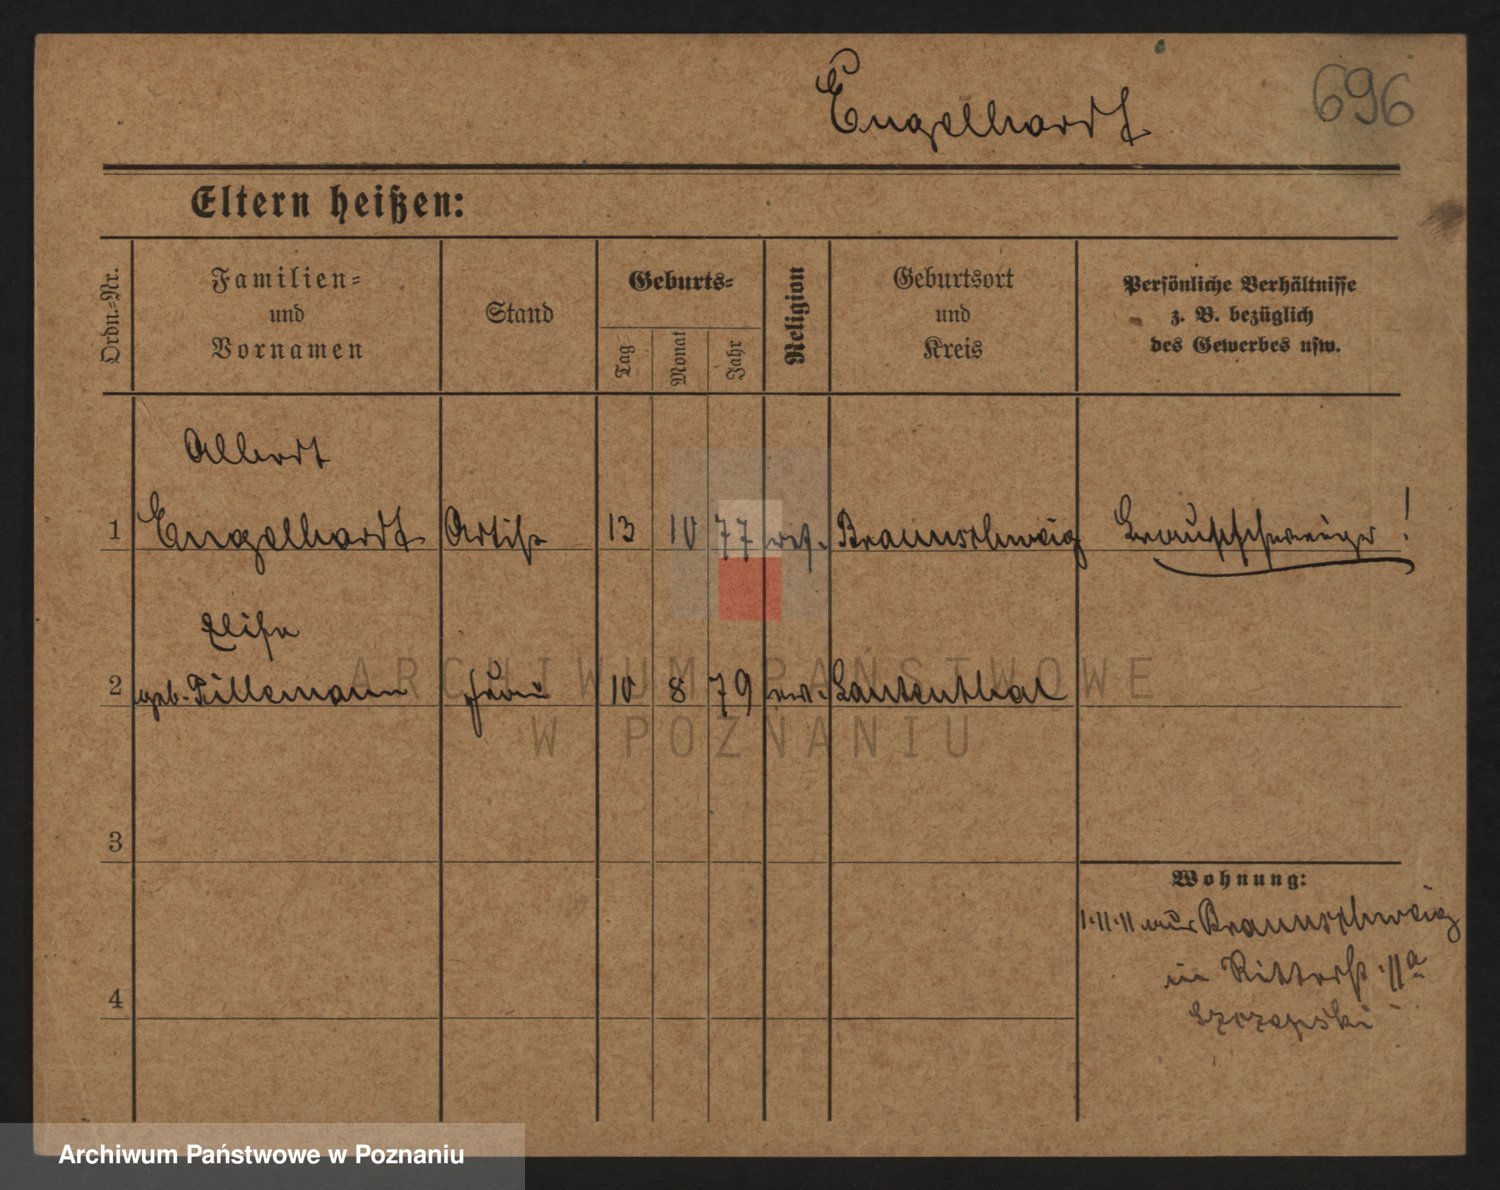 Engelhardt
696
Eltern heißen:
Ordn.-Nr.
Familien-
und
Vornamen
Stand
Geburts-
Tag
Monat
Jahr
Religion
Geburtsort
und
Kreis
Persönliche Verhältnisse
z. B. bezüglich
des Gewerbes usw.
Albert
1 Engelhardt Artist 13 10 77 ref. Braunschweig Braunschweiger!
Elise
2 geb. Tillemann Frau 10 8 79 ev. Lautenthal
3
Wohnung:
1.11.11 aus Braunschweig
in Ritterst. 11a
4
Szczepski
ARCHIWUM PAŃSTWOWE
W POZNANIU
Archiwum Państwowe w Poznaniu